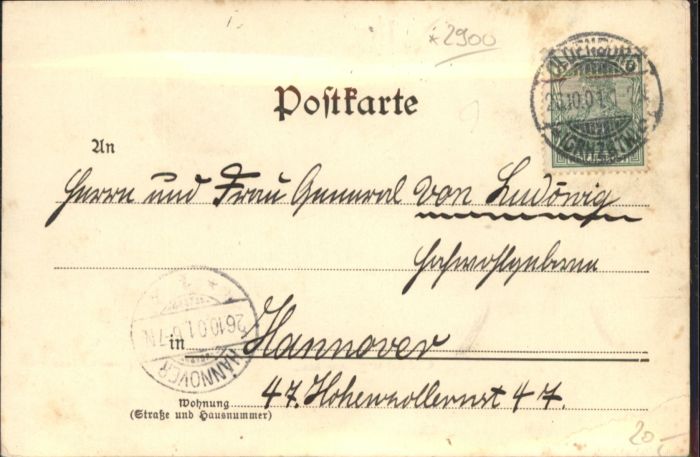 *2900
Postkarte
An
Herrn und Frau General von Ludowig
Hochwohlgeboren
26.10.01. 6-7N.
HANNOVER
in Hannover
47. Hohenzollernst 47.
Wohnung
(Straße und Hausnummer)
20-